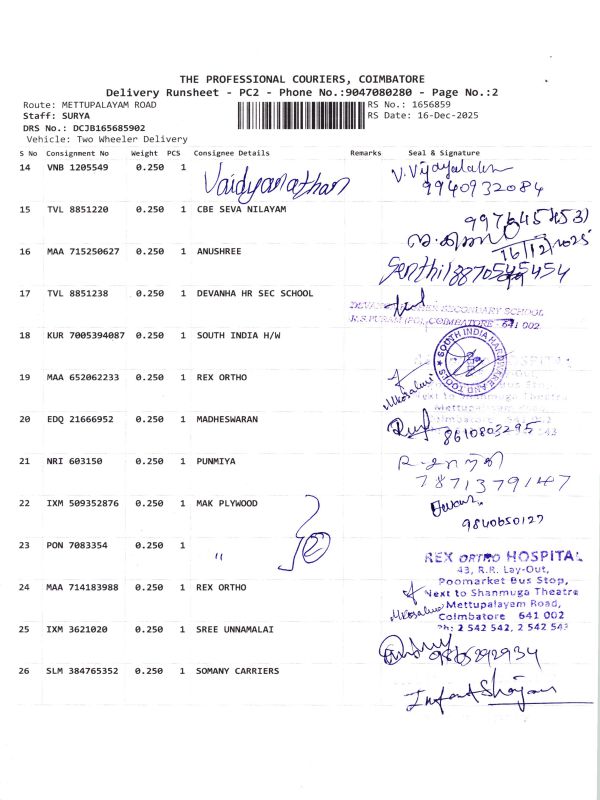 THE PROFESSIONAL COURIERS, COIMBATORE
Delivery Runsheet - PC2 - Phone No.:9047080280 - Page No.:2
Route: METTUPALAYAM ROAD RS No.: 1656859
Staff: SURYA RS Date: 16-Dec-2025
DRS No.: DCJB165685902
Vehicle: Two Wheeler Delivery
S No Consignment No Weight PCS Consignee Details Remarks Seal & Signature
14 VNB 1205549 0.250 1 Vaidyanathan V. Vijayalakshmi
9940932084
15 TVL 8851220 0.250 1 CBE SEVA NILAYAM
16/12/2025
16 MAA 715250627 0.250 1 ANUSHREE Senthil
17 TVL 8851238 0.250 1 DEVANHA HR SEC SCHOOL
SECONDARY SCHOOL
COIMBATORE - 641 002
18 KUR 7005394087 0.250 1 SOUTH INDIA H/W SOUTH INDIA HARDWARE AND TOOLS
19 MAA 652062233 0.250 1 REX ORTHO
Next to Shanmuga Theatre
20 EDQ 21666952 0.250 1 MADHESWARAN
8610803295
21 NRI 603150 0.250 1 PUNMIYA
7871379147
22 IXM 509352876 0.250 1 MAK PLYWOOD
9840650127
23 PON 7083354 0.250 1 "
REX ORTHO HOSPITAL
43, R.R. Lay-Out,
Poomarket Bus Stop,
24 MAA 714183988 0.250 1 REX ORTHO Next to Shanmuga Theatre
Mettupalayam Road,
Coimbatore 641 002
25 IXM 3621020 0.250 1 SREE UNNAMALAI Ph: 2 542 542, 2 542 543
9865292934
26 SLM 384765352 0.250 1 SOMANY CARRIERS